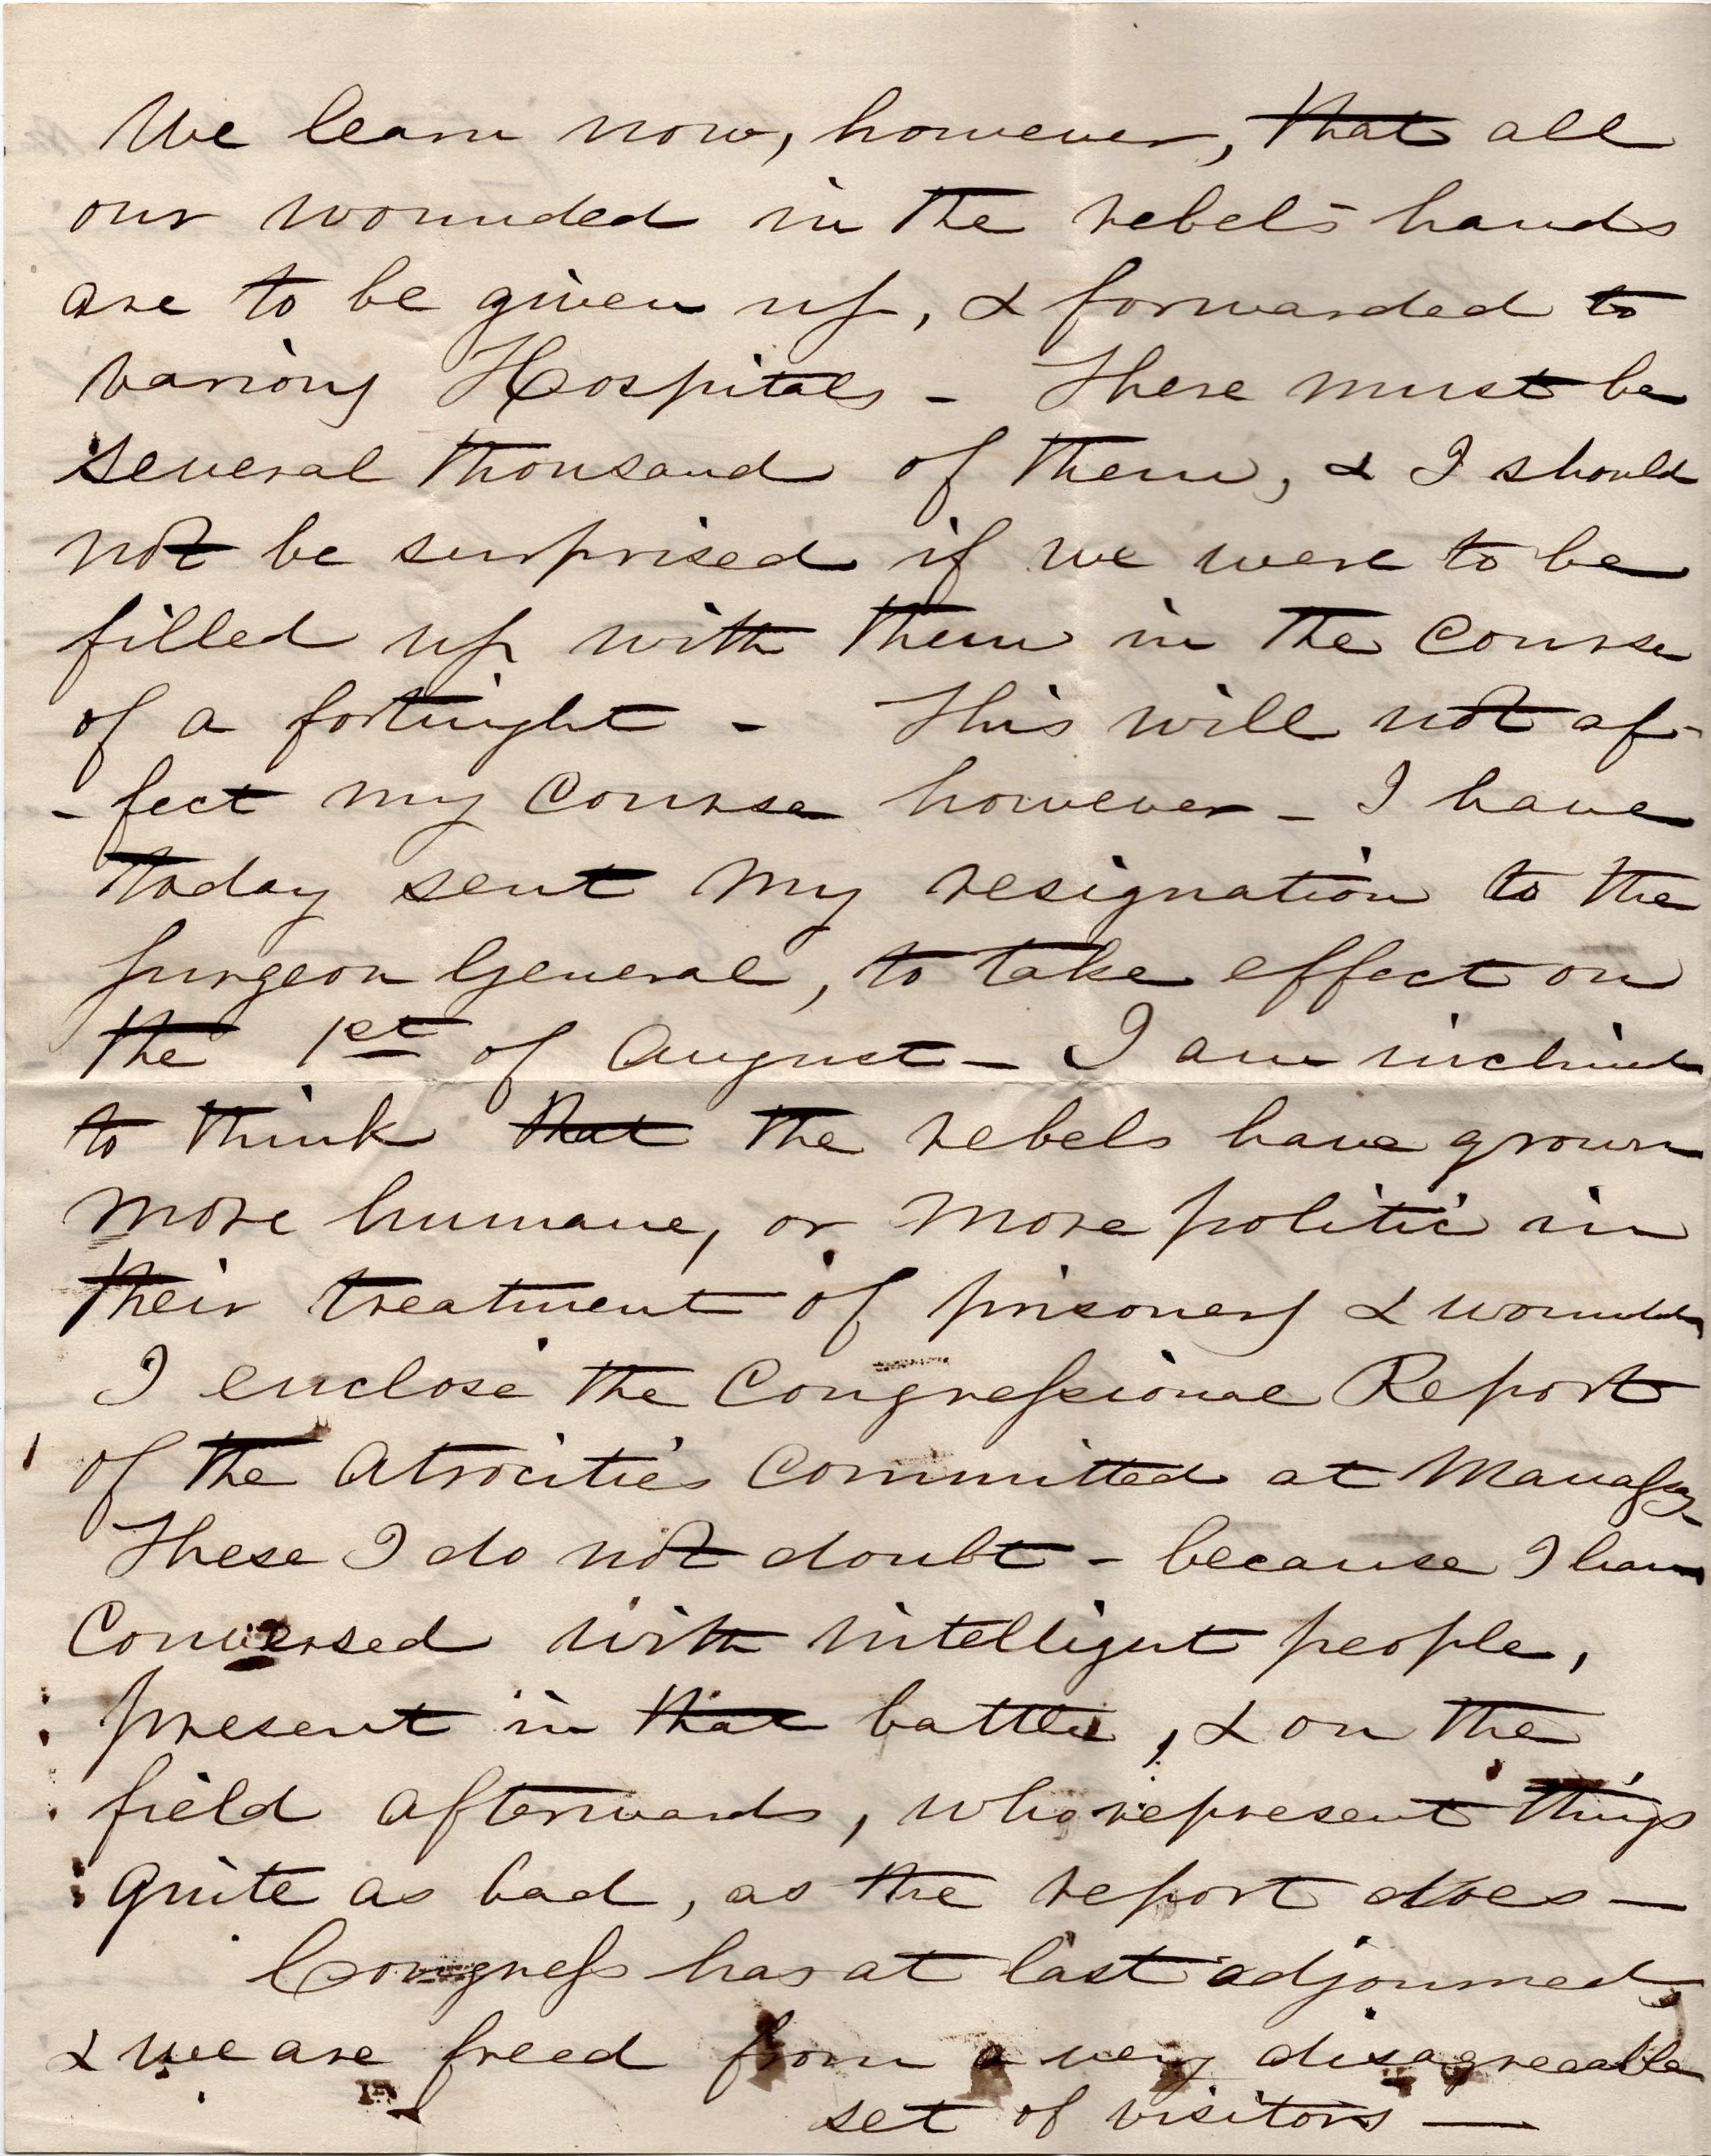 We learn now, however, that all
our wounded in the rebels hands
are to be given up, & forwarded to
various Hospitals - There must be
several thousand of them, & I should
not be surprised if we were to be
filled up with them in the course
of a fortnight - This will not af-
-fect my course however - I have
today sent my resignation to the
Surgeon General, to take effect on
the 1st of August - I am inclined
to think that the rebels have grown
more humane, or more politic in
their treatment of prisoners & wounded
I enclose the Congressional Report
of the Atrocities Committed at Manassas
These I do not doubt - because I have
Conversed with intelligent people,
present in that battle, & on the
field afterwards, who represent things
quite as bad, as the report does -
Congress has at last adjourned,
& we are freed from a very disagreeable
set of visitors -